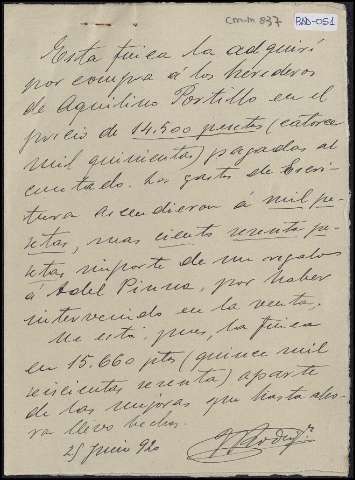 cm-m 837
BAD-051
Esta finca la adquirí
por compra á los herederos
de Aquilino Portillo en el
precio de 14.500 pesetas (catorce
mil quinientas) pagadas al
contado. Los gastos de Escri-
tura ascendieron á mil pe-
setas, mas ciento sesenta pe-
setas importe de un regalo
á Adel Pinna, por haber
intervenido en la venta.
Me está, pues, la finca
en 15.660 ptas (quince mil
seiscientas sesenta) aparte
de las mejoras que hasta aho-
ra llevo hechas.
25 Junio 920